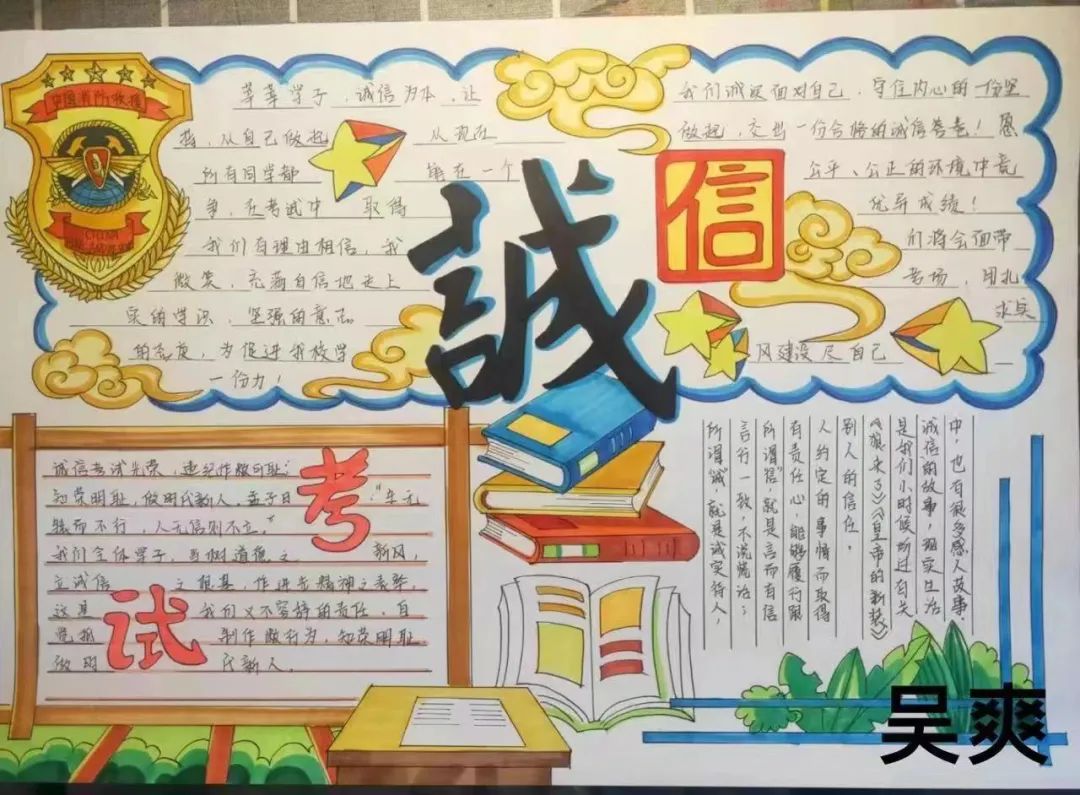 中国消防救援
CHINA
誠信
莘莘学子，诚信为本，让我们诚实面对自己，守住内心的一份坚
从自己做起 从现在做起，交出一份合格的诚信答卷！愿
所有同学都能在一个公平、公正的环境中竞
争，在考试中取得优异成绩！
我们有理由相信，我们将会面带
微笑，充满自信地走上考场，用扎
实的学识，坚强的意志 求实
的态度，为促进我校学风建设尽自己
一份力！
考试
诚信考试光荣，违纪作弊可耻；
知荣明耻，做时代新人。孟子曰："车无
辕而不行，人无信则不立。"
我们全体学子，当树道德之新风，
立诚信之根基，作进步精神之表率
这是我们义不容辞的责任，自
觉抵制作弊行为，知荣明耻
做时代新人。
所谓"诚"，就是诚实待人，
言行一致，不说谎话；
所谓"信"，就是言而有信
有责任心，能够履行跟
人约定的事情而取得
别人的信任。
《狼来了》《皇帝的新装》
是我们小时候听过有关
诚信的故事，现实生活
中，也有很多感人故事。
吴爽